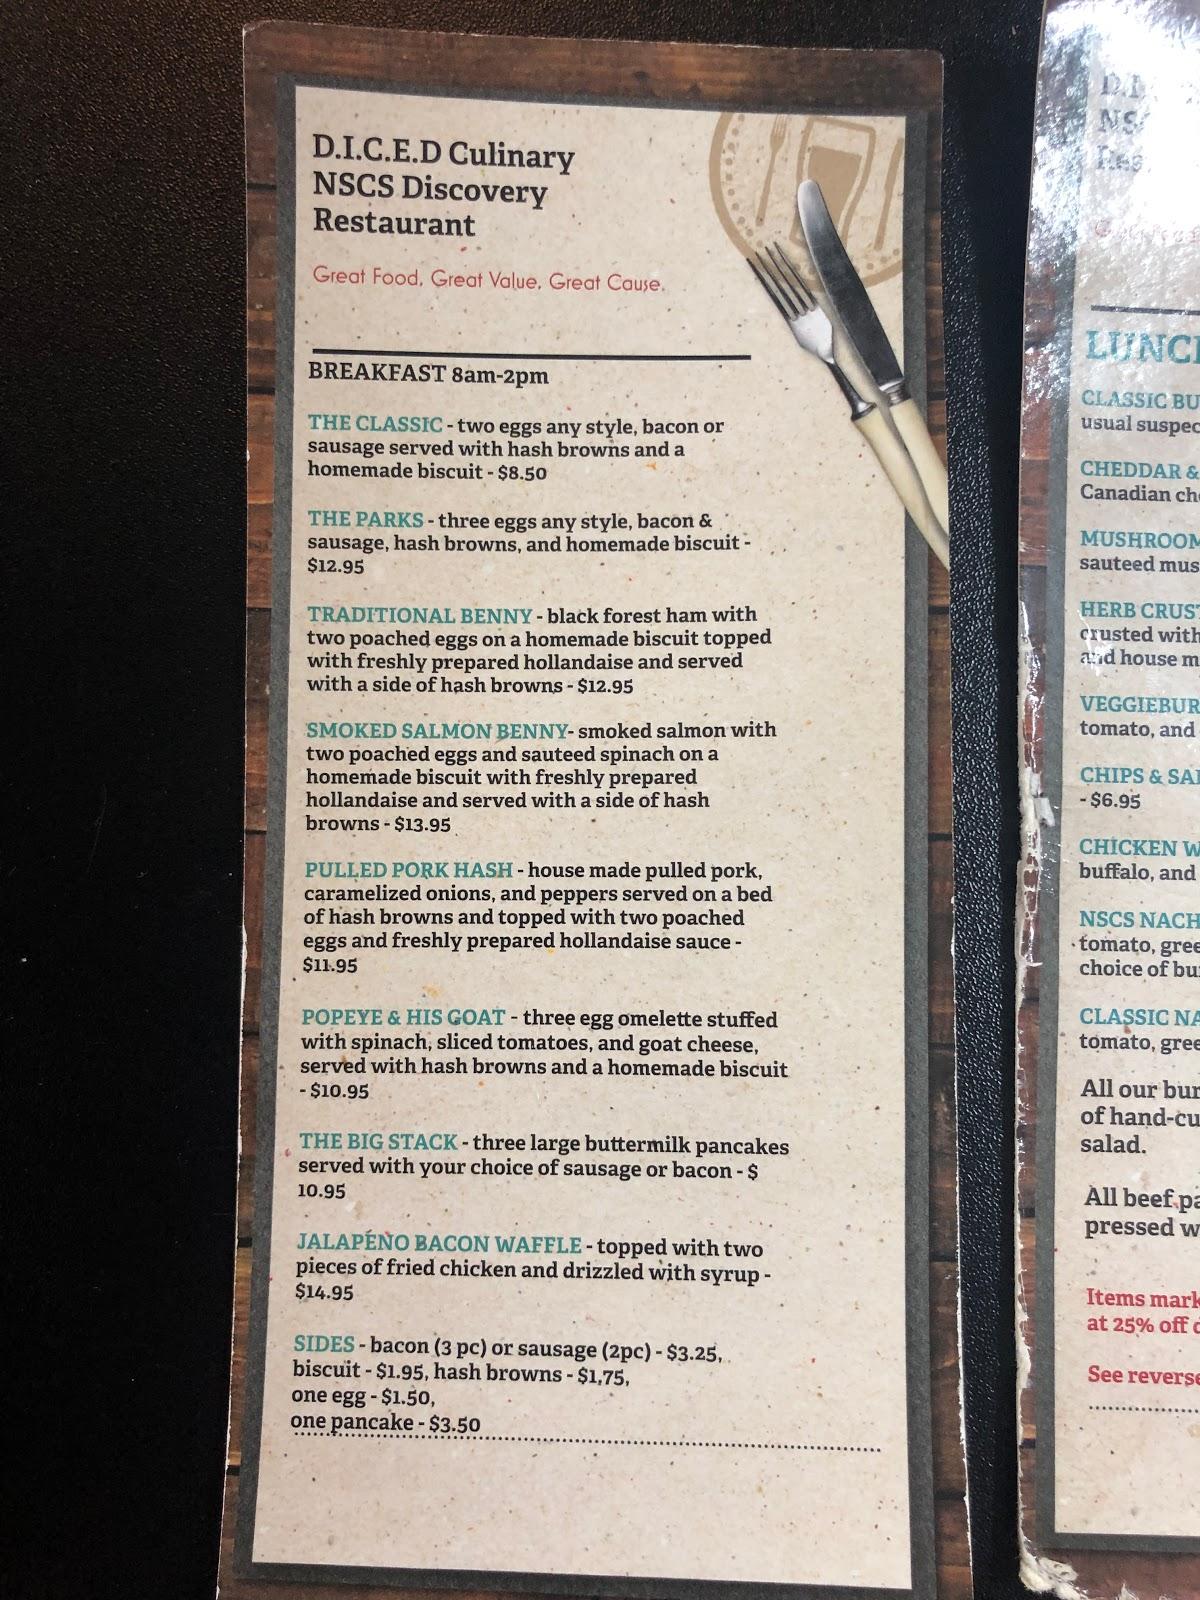 D.I.C.E.D Culinary
NSCS Discovery
Restaurant
Great Food, Great Value, Great Cause.
BREAKFAST 8am-2pm
THE CLASSIC - two eggs any style, bacon or
sausage served with hash browns and a
homemade biscuit - $8.50
THE PARKS - three eggs any style, bacon &
sausage, hash browns, and homemade biscuit -
$12.95
TRADITIONAL BENNY - black forest ham with
two poached eggs on a homemade biscuit topped
with freshly prepared hollandaise and served
with a side of hash browns - $12.95
SMOKED SALMON BENNY- smoked salmon with
two poached eggs and sauteed spinach on a
homemade biscuit with freshly prepared
hollandaise and served with a side of hash
browns - $13.95
PULLED PORK HASH - house made pulled pork,
caramelized onions, and peppers served on a bed
of hash browns and topped with two poached
eggs and freshly prepared hollandaise sauce -
$11.95
POPEYE & HIS GOAT - three egg omelette stuffed
with spinach, sliced tomatoes, and goat cheese,
served with hash browns and a homemade biscuit
- $10.95
THE BIG STACK - three large buttermilk pancakes
served with your choice of sausage or bacon - $
10.95
JALAPÉNO BACON WAFFLE - topped with two
pieces of fried chicken and drizzled with syrup -
$14.95
SIDES - bacon (3 pc) or sausage (2pc) - $3.25,
biscuit - $1.95, hash browns - $1,75,
one egg - $1.50,
one pancake - $3.50
CLASSIC
usual
CHEDDAR &
Canadian
MUSHROOM
sauteed
HERB
crusted with
and house
tomato, and
CHIPS &
- $6.95
CHICKEN
buffalo, and
NSCS
tomato,
choice of
CLASSIC
tomato,
All our
of
salad.
All beef
pressed
Items
at 25% off
See